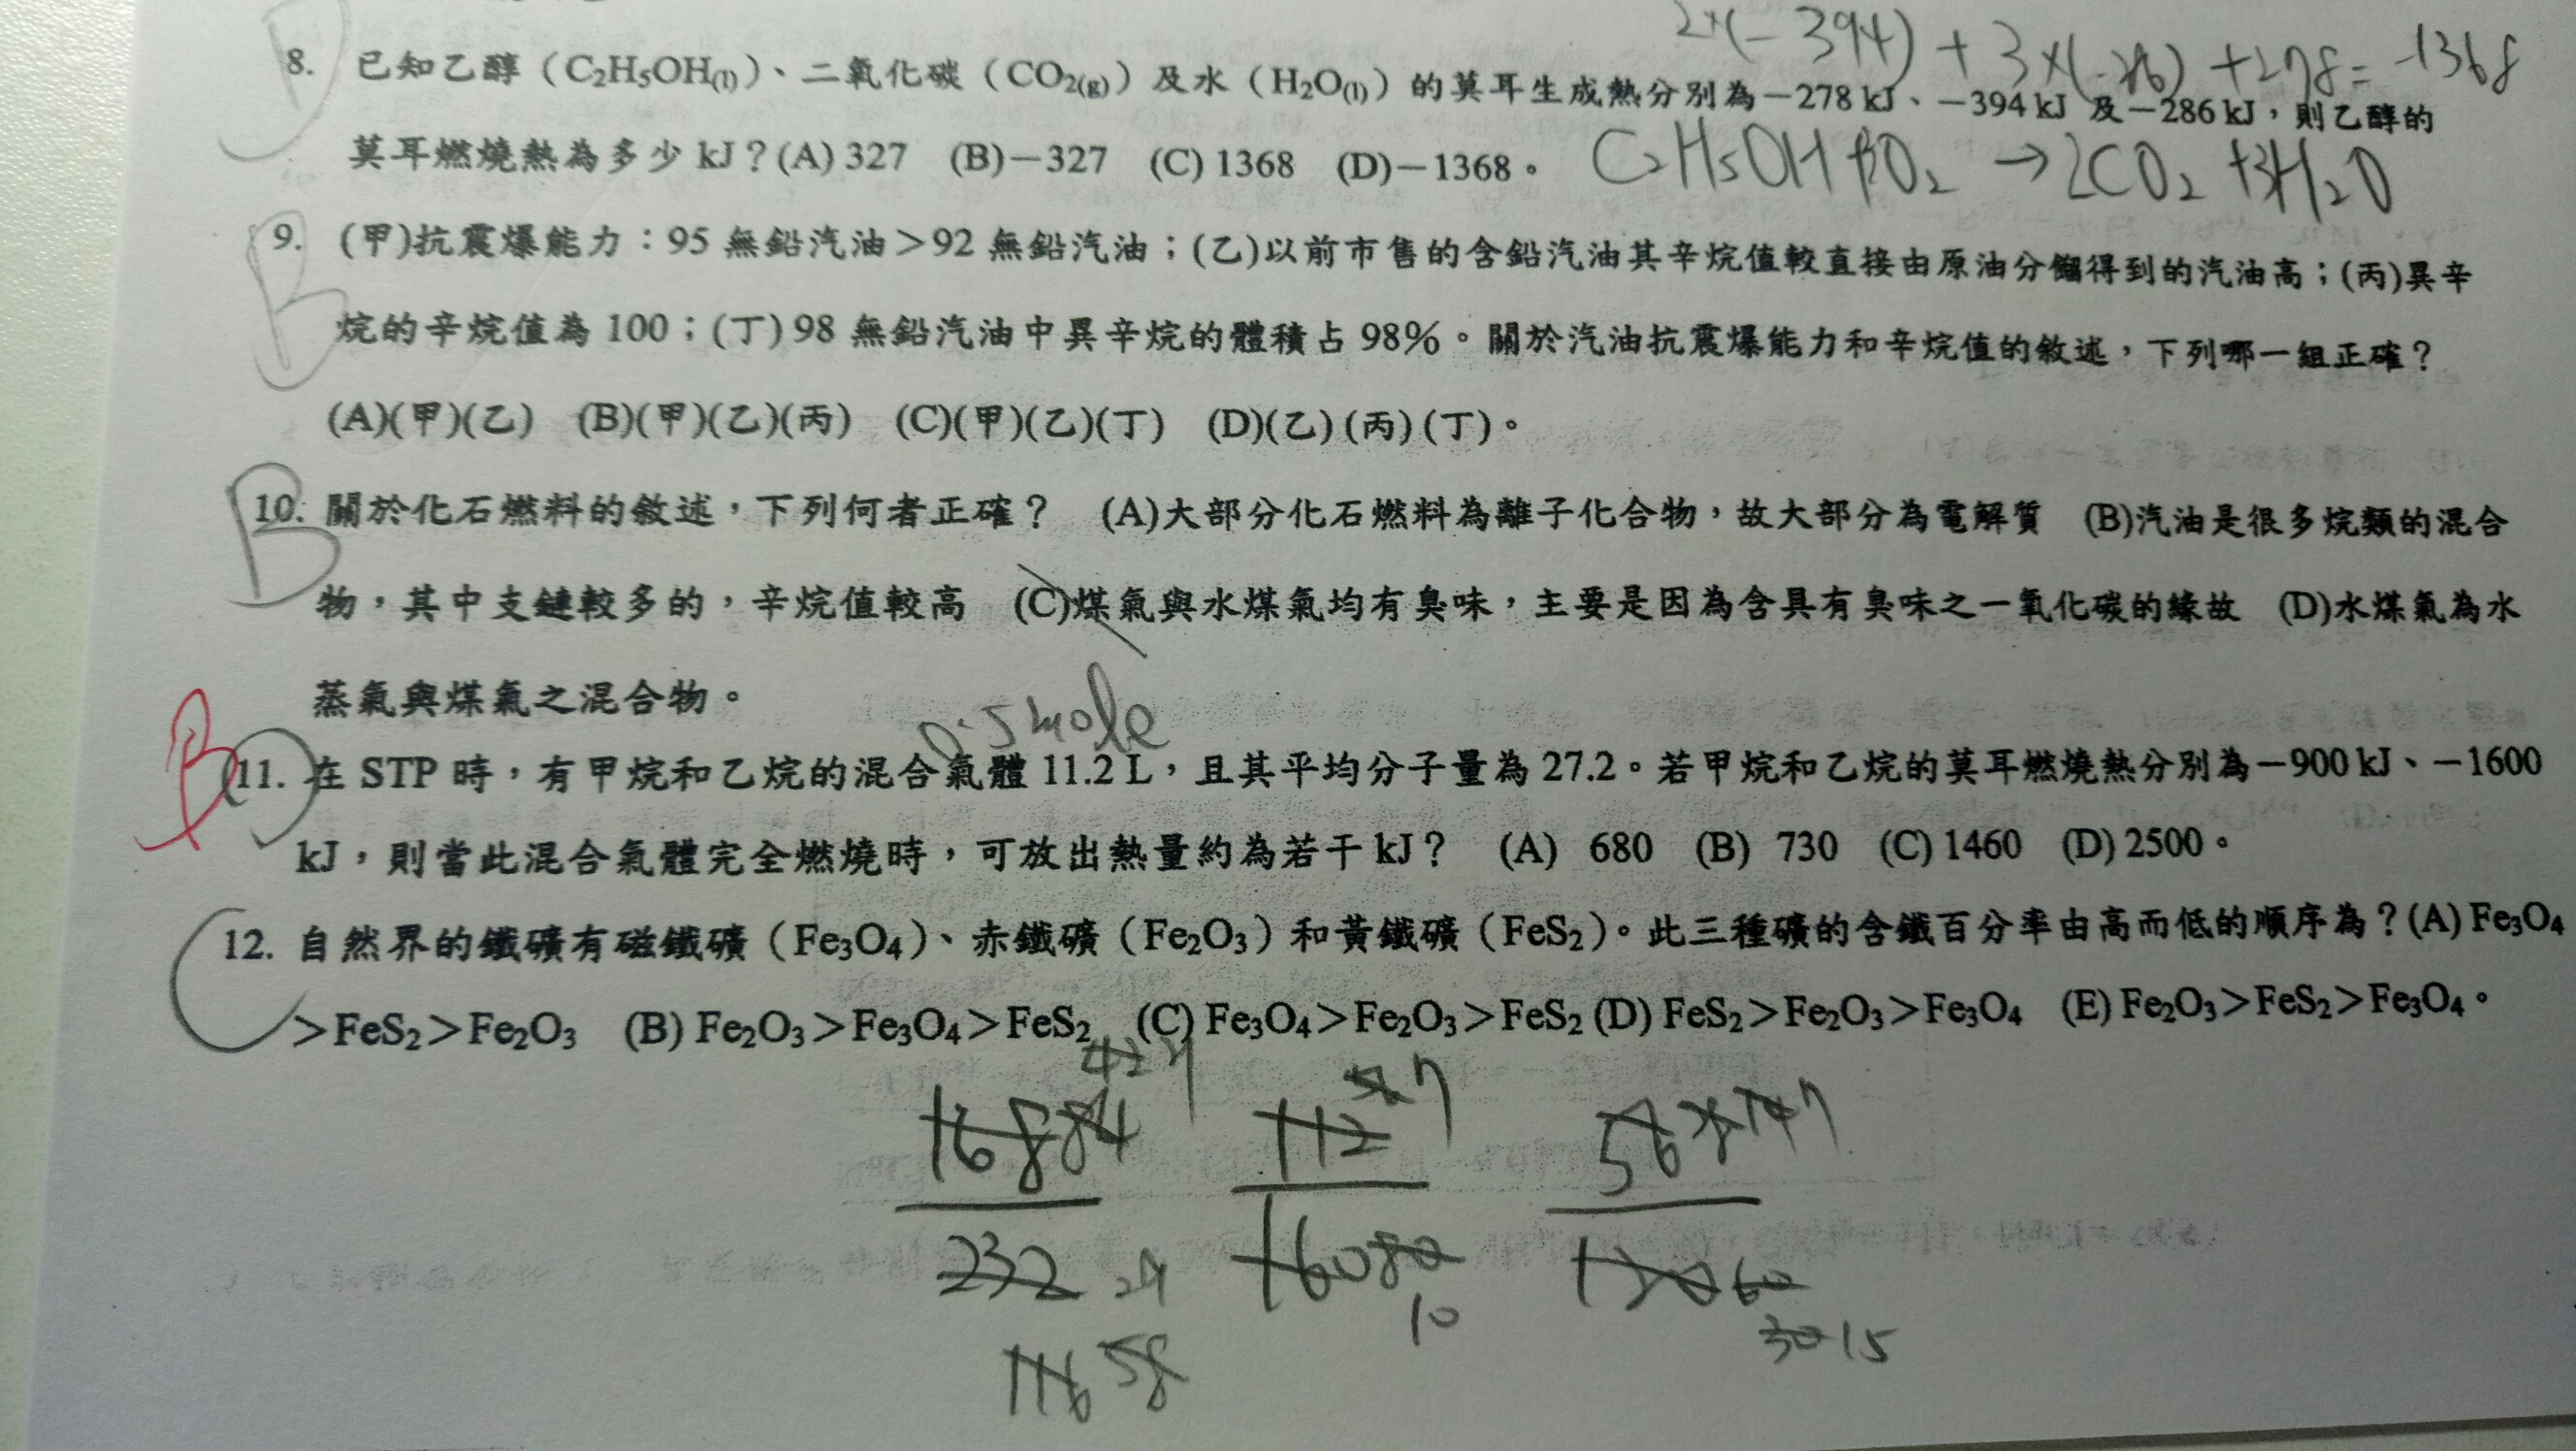 2×(-394)+3×(-286)+278=-1368
D
8. 已知乙醇（C₂H₅OH(l)）、二氧化碳（CO₂(g)）及水（H₂O(l)）的莫耳生成熱分別為－278 kJ、－394 kJ 及－286 kJ，則乙醇的
莫耳燃燒熱為多少 kJ？(A) 327 (B)－327 (C) 1368 (D)－1368。
C₂H₅OH+3O₂→2CO₂+3H₂O
B
9. (甲)抗震爆能力：95 無鉛汽油＞92 無鉛汽油；(乙)以前市售的含鉛汽油其辛烷值較直接由原油分餾得到的汽油高；(丙)異辛
烷的辛烷值為 100；(丁) 98 無鉛汽油中異辛烷的體積占 98%。關於汽油抗震爆能力和辛烷值的敘述，下列哪一組正確？
(A)(甲)(乙) (B)(甲)(乙)(丙) (C)(甲)(乙)(丁) (D)(乙)(丙)(丁)。
B
10. 關於化石燃料的敘述，下列何者正確？ (A)大部分化石燃料為離子化合物，故大部分為電解質 (B)汽油是很多烷類的混合
物，其中支鏈較多的，辛烷值較高 (C)煤氣與水煤氣均有臭味，主要是因為含具有臭味之一氧化碳的緣故 (D)水煤氣為水
蒸氣與煤氣之混合物。
0.5 mole
B
11. 在 STP 時，有甲烷和乙烷的混合氣體 11.2 L，且其平均分子量為 27.2。若甲烷和乙烷的莫耳燃燒熱分別為－900 kJ、－1600
kJ，則當此混合氣體完全燃燒時，可放出熱量約為若干 kJ？ (A) 680 (B) 730 (C) 1460 (D) 2500。
C
12. 自然界的鐵礦有磁鐵礦（Fe₃O₄）、赤鐵礦（Fe₂O₃）和黃鐵礦（FeS₂）。此三種礦的含鐵百分率由高而低的順序為？(A) Fe₃O₄
＞FeS₂＞Fe₂O₃ (B) Fe₂O₃＞Fe₃O₄＞FeS₂ (C) Fe₃O₄＞Fe₂O₃＞FeS₂ (D) FeS₂＞Fe₂O₃＞Fe₃O₄ (E) Fe₂O₃＞FeS₂＞Fe₃O₄。
42 7
168 84 112 7 56 14 7
232 29 160 80 120 60
10 30 15
116 58